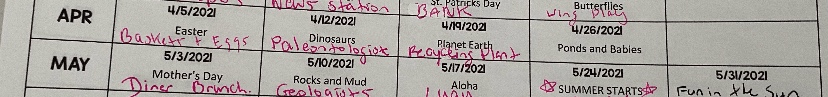 News Station St. Patricks Day Butterflies
BANK Wing Play
APR 4/5/2021 4/12/2021 4/19/2021 4/26/2021
Easter Dinosaurs Planet Earth Ponds and Babies
Baskets + Eggs Paleontologist Recycling Plant
MAY 5/3/2021 5/10/2021 5/17/2021 5/24/2021 5/31/2021
Mother's Day Rocks and Mud Aloha SUMMER STARTS Fun in the Sun
Diner Brunch. Geologists